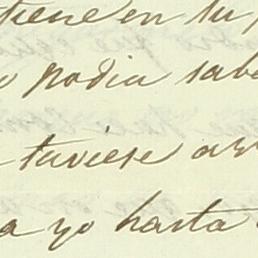 tiene en tu
podia sab
tuviese
a yo hasta